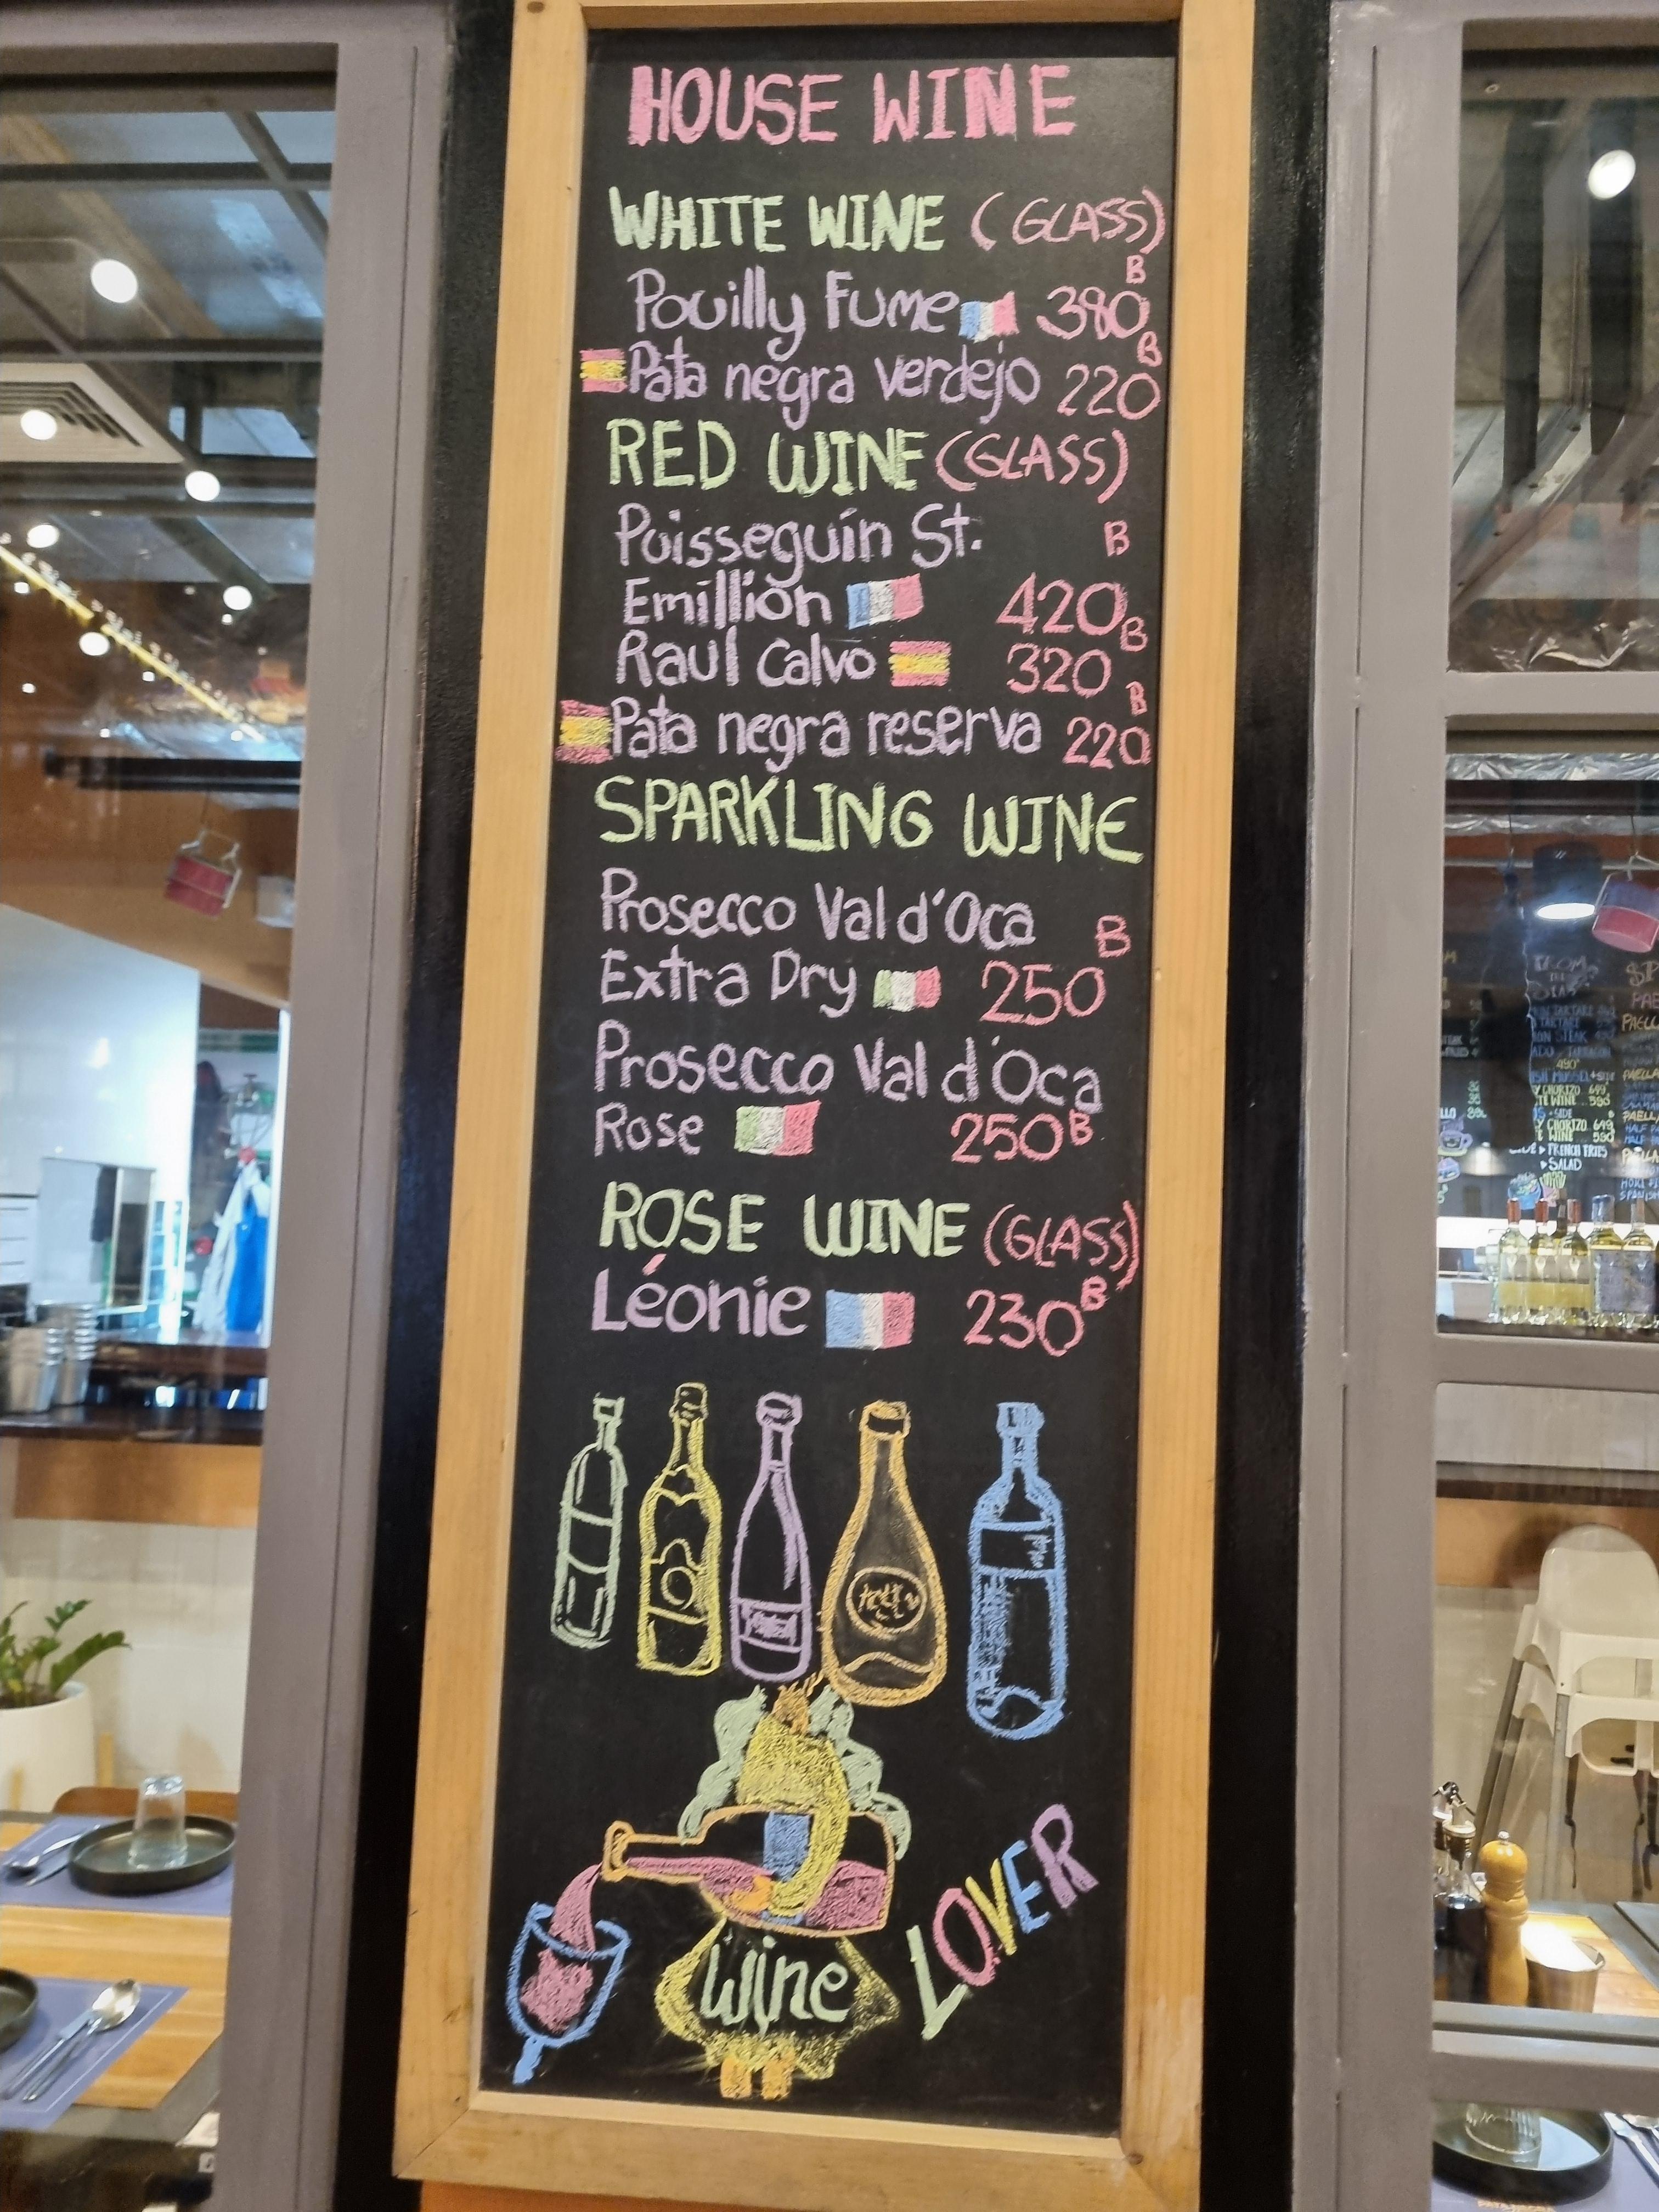 HOUSE WINE
WHITE WINE (GLASS)
Pouilly Fume 380 B
Pata negra verdejo 220 B
RED WINE (GLASS)
Puisseguin St. B
Emillion 420
Raul Calvo 320 B
Pata negra reserva 220 B
SPARKLING WINE
Prosecco Val d'Oca B
Extra Dry 250
Prosecco Val d'Oca
Rose 250 B
ROSE WINE (GLASS)
Léonie 230 B
Wine
LOVER
FRENCH FRIES
SALAD